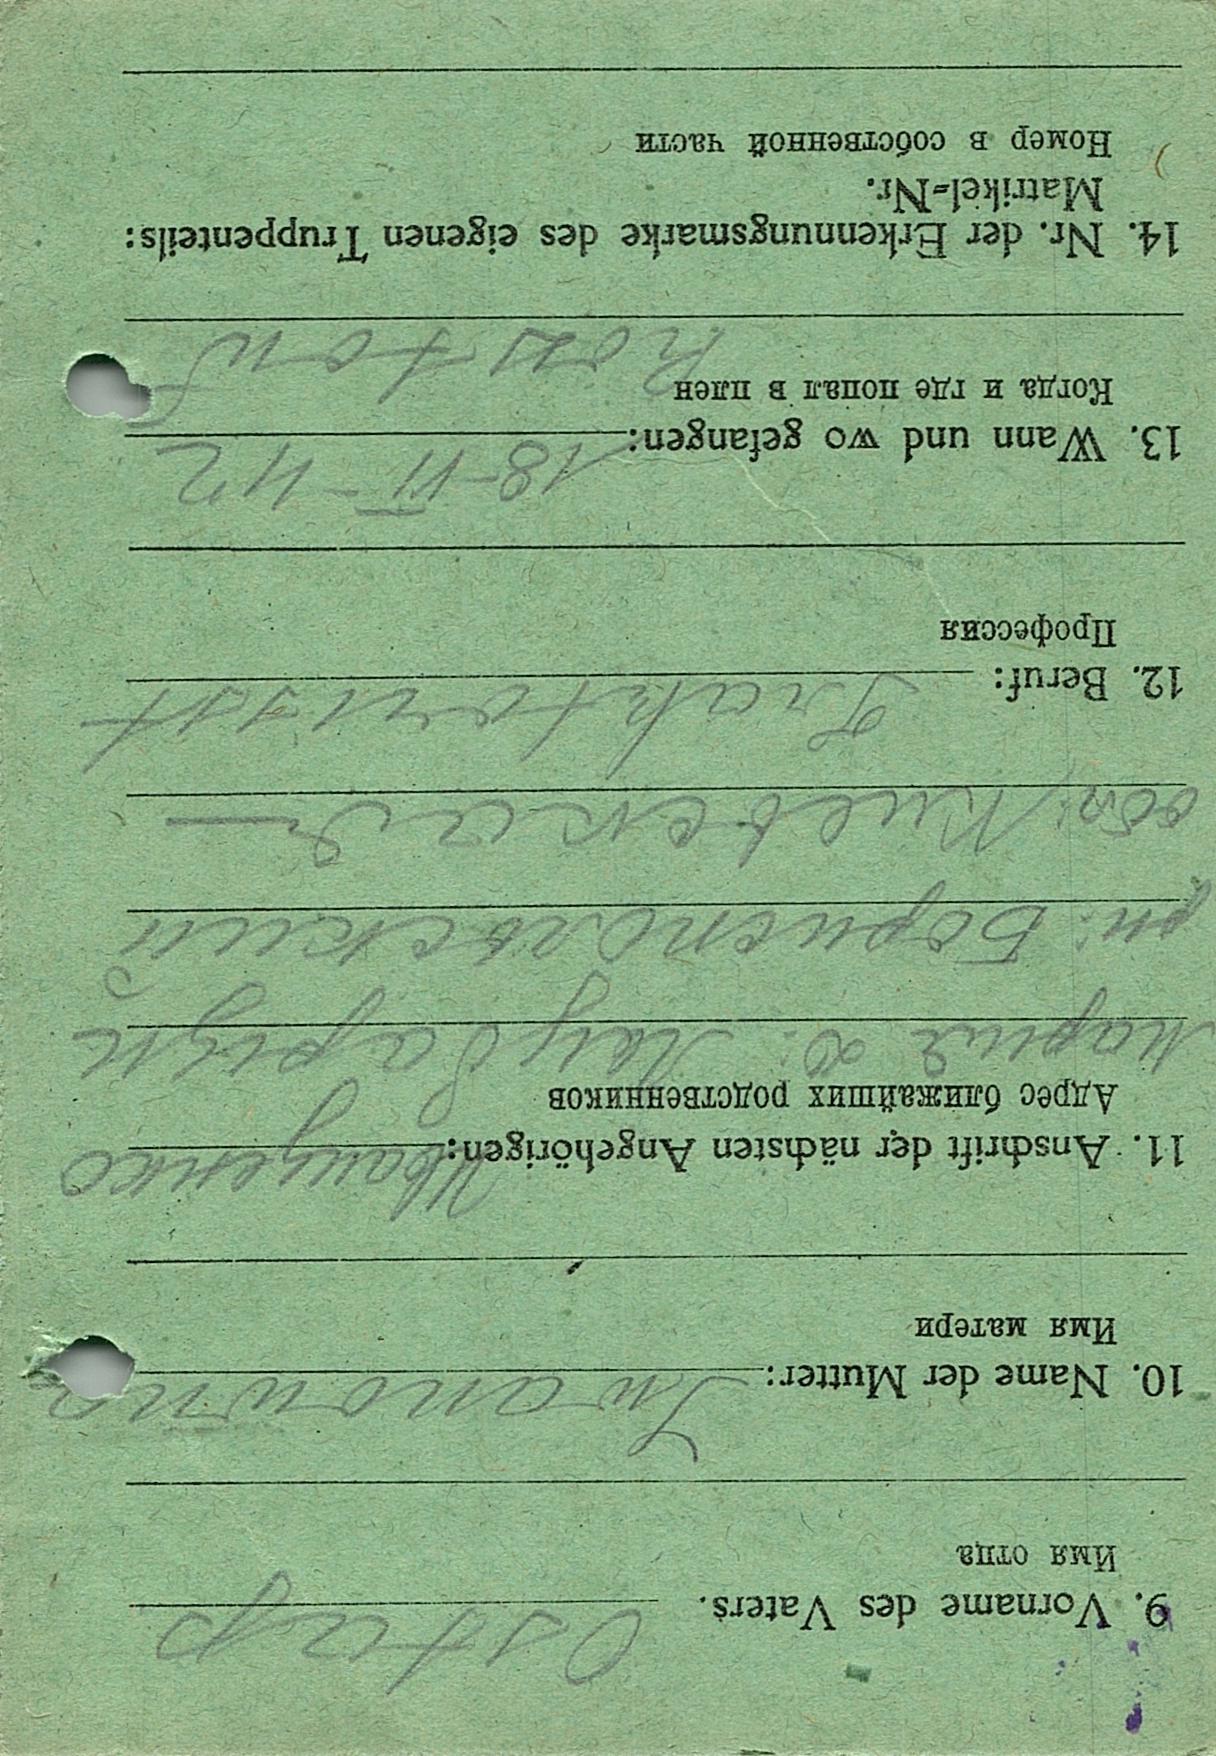 9. Vorname des Vaters.
Ostap
Имя отца
10. Name der Mutter:
Iwanowna
Имя матери
11. Anschrift der nächsten Angehörigen:
Иващенко
Адрес ближайших родственников
Мария
рн: Бориспольский
обл: Киевская
12. Beruf: Traktorist
Профессия
13. Wann und wo gefangen: 18-VI-42
Когда и где попал в плен
Rostow
14. Nr. der Erkennungsmarke des eigenen Truppenteils:
Matrikel=Nr.
Номер в собственной части